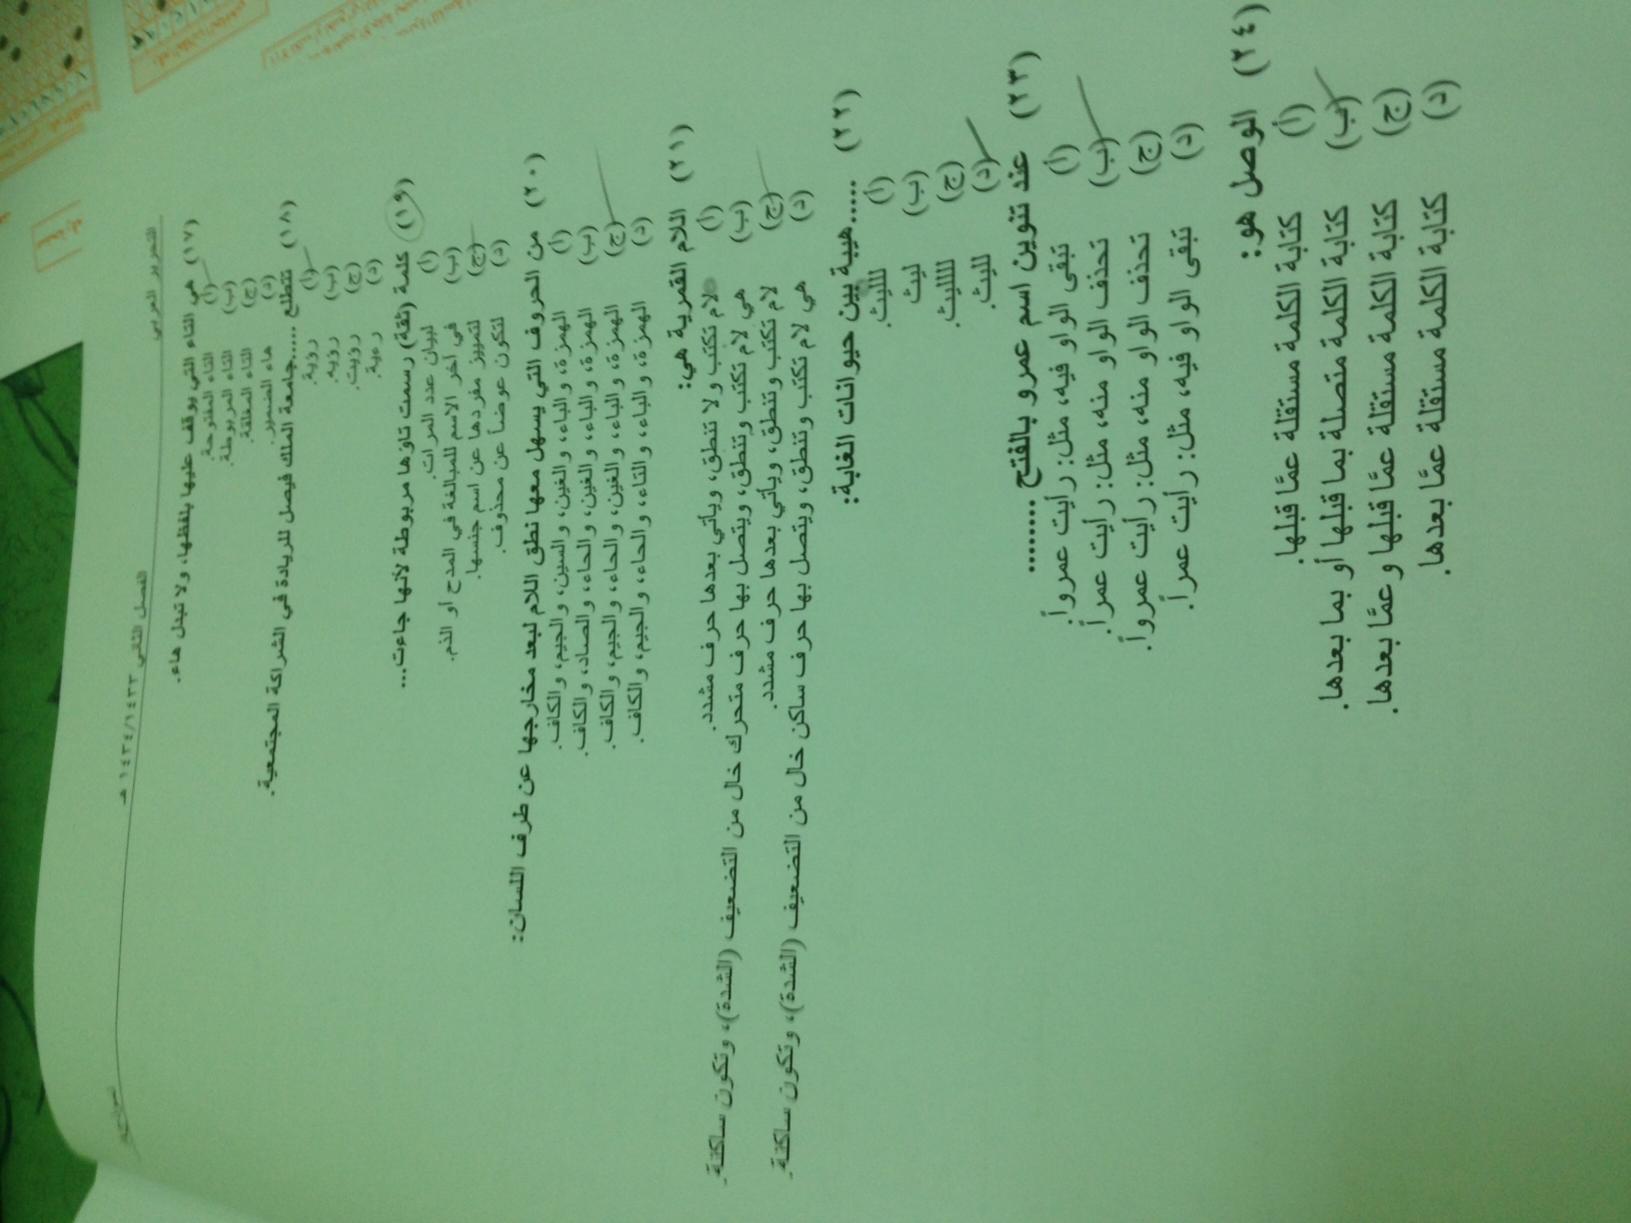 التحرير العربي
الفصل الثاني ١٤٣٣/١٤٣٤ هـ
(١٧) هي التاء التي يوقف عليها بلفظها، ولا تبدل هاء.
(أ) التاء المفتوحة.
(ب) التاء المربوطة.
(ج) التاء المغلقة.
(د) هاء الضمير.
(١٨) تتطلع ......جامعة الملك فيصل للريادة في الشراكة المجتمعية.
(أ) رؤية.
(ب) رؤيه.
(ج) رؤيت.
(د) رءية.
(١٩) كلمة (ثقة) رسمت تاؤها مربوطة لأنها جاءت...
(أ) لبيان عدد المرات.
(ب) في آخر الاسم للمبالغة في المدح أو الذم.
(ج) لتمييز مفردها عن اسم جنسها.
(د) لتكون عوضاً عن محذوف.
(٢٠) من الحروف التي يسهل معها نطق اللام لبعد مخارجها عن طرف اللسان:
(أ) الهمزة، والباء، والغين، والسين، والجيم، والكاف.
(ب) الهمزة، والباء، والغين، والحاء، والصاد، والكاف.
(ج) الهمزة، والباء، والغين، والحاء، والجيم، والكاف.
(د) الهمزة، والباء، والتاء، والحاء، والجيم، والكاف.
(٢١) اللام القمرية هي:
(أ) لام تكتب ولا تنطق، ويأتي بعدها حرف مشدد.
(ب) هي لام تكتب وتنطق، ويتصل بها حرف متحرك خال من التضعيف (الشدة)، وتكون ساكنة.
(ج) لام تكتب وتنطق، ويأتي بعدها حرف مشدد.
(د) هي لام تكتب وتنطق، ويتصل بها حرف ساكن خال من التضعيف (الشدة)، وتكون ساكنة.
(٢٢) ......هيبة بين حيوانات الغابة:
(أ) لليث.
(ب) ليث
(ج) للليث.
(د) لليث.
(٢٣) عند تنوين اسم عمرو بالفتح ........
(أ) تبقى الواو فيه، مثل: رأيت عمرواً.
(ب) تحذف الواو منه، مثل: رأيت عمراً.
(ج) تحذف الواو منه، مثل: رأيت عمرواً.
(د) تبقى الواو فيه، مثل: رأيت عمراً.
(٢٤) الوصل هو:
(أ) كتابة الكلمة مستقلة عمَّا قبلها.
(ب) كتابة الكلمة متصلة بما قبلها أو بما بعدها.
(ج) كتابة الكلمة مستقلة عمَّا قبلها وعمَّا بعدها.
(د) كتابة الكلمة مستقلة عمَّا بعدها.